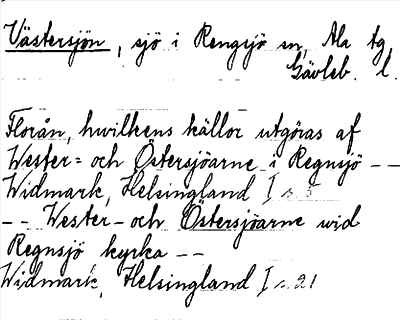 Västersjön, sjö i Rengsjö sn, Ala tg,
Gävleb. l.
Florån, hwilkens källor utgöras af
Wester= och Östersjöarne i Regnsjö --
Widmark, Helsingland I s. 5
-- Wester- och Östersjöarne wid
Regnsjö kyrka --
Widmark, Helsingland I s. 21